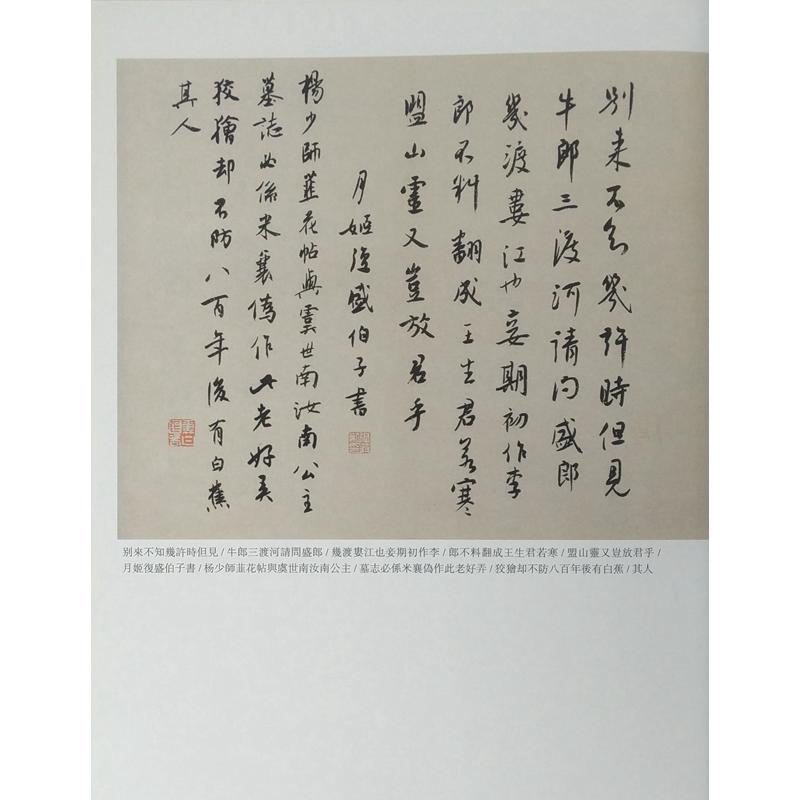 別来不知幾許時但見
牛郎三渡河請问盛郎
幾渡婁江也妾期初作李
郎不料翻成王生君若寒
盟山靈又豈放君乎
月姬復盛伯子書
楊少師韮花帖與虞世南汝南公主
墓誌必係米襄偽作此老好弄
狡獪却不防八百年後有白蕉
其人
別來不知幾許時但見/牛郎三渡河請問盛郎/幾渡婁江也妾期初作李/郎不料翻成王生君若寒/盟山靈又豈放君乎/
月姬復盛伯子書/杨少師韮花帖與虞世南汝南公主/墓志必係米襄偽作此老好弄/狡獪却不防八百年後有白蕉/其人